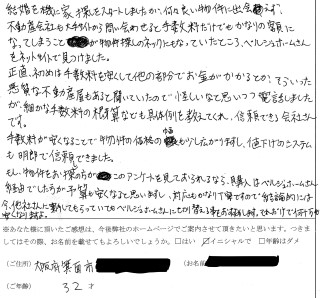 結婚を機に家探しをスタートしましたが、何々良い物件に出会えず、
不動産会社も大手サイトから問い合わせると手数料だけでもかなりの額に
なってしまうこと が物件探しのネックになっていたところ、ベルシュホームさん
をネットサイトで見つけました。
正直、初めは手数料も安くして他の部分でお金がかかるとか?そういった
悪質な不動産屋もあると聞いていたので怪しいなと思いつつ電話しました
が、細かな手数料の積算なども具体例を教えてくれ、信頼できる会社さん
です。
手数料が安くなることで物件の価格の幅 もかり広がりますし、値下げのシステム
も明郎で信頼できました。
もし物件をお探しの方が このアンケートを見ておられるなら、購入はベルシュホームさん
経由でした方が予算が安くなると思いますし、対応もかなり丁寧ですので結論的には
今、他社さんに案内してもらっていてもベルシュホームさんにしたから替える事をお
安くなります。
※あなた様に頂いたご感想は、今後弊社のホームページでご案内させて頂きたいと思います。つきま
してはその際、お名前を載せてもよろしいでしょうか。□はい ☑イニシャルで □年齢はダメ
(ご住所) 大阪府箕面市 (お名前
(ご年齢) 32 才